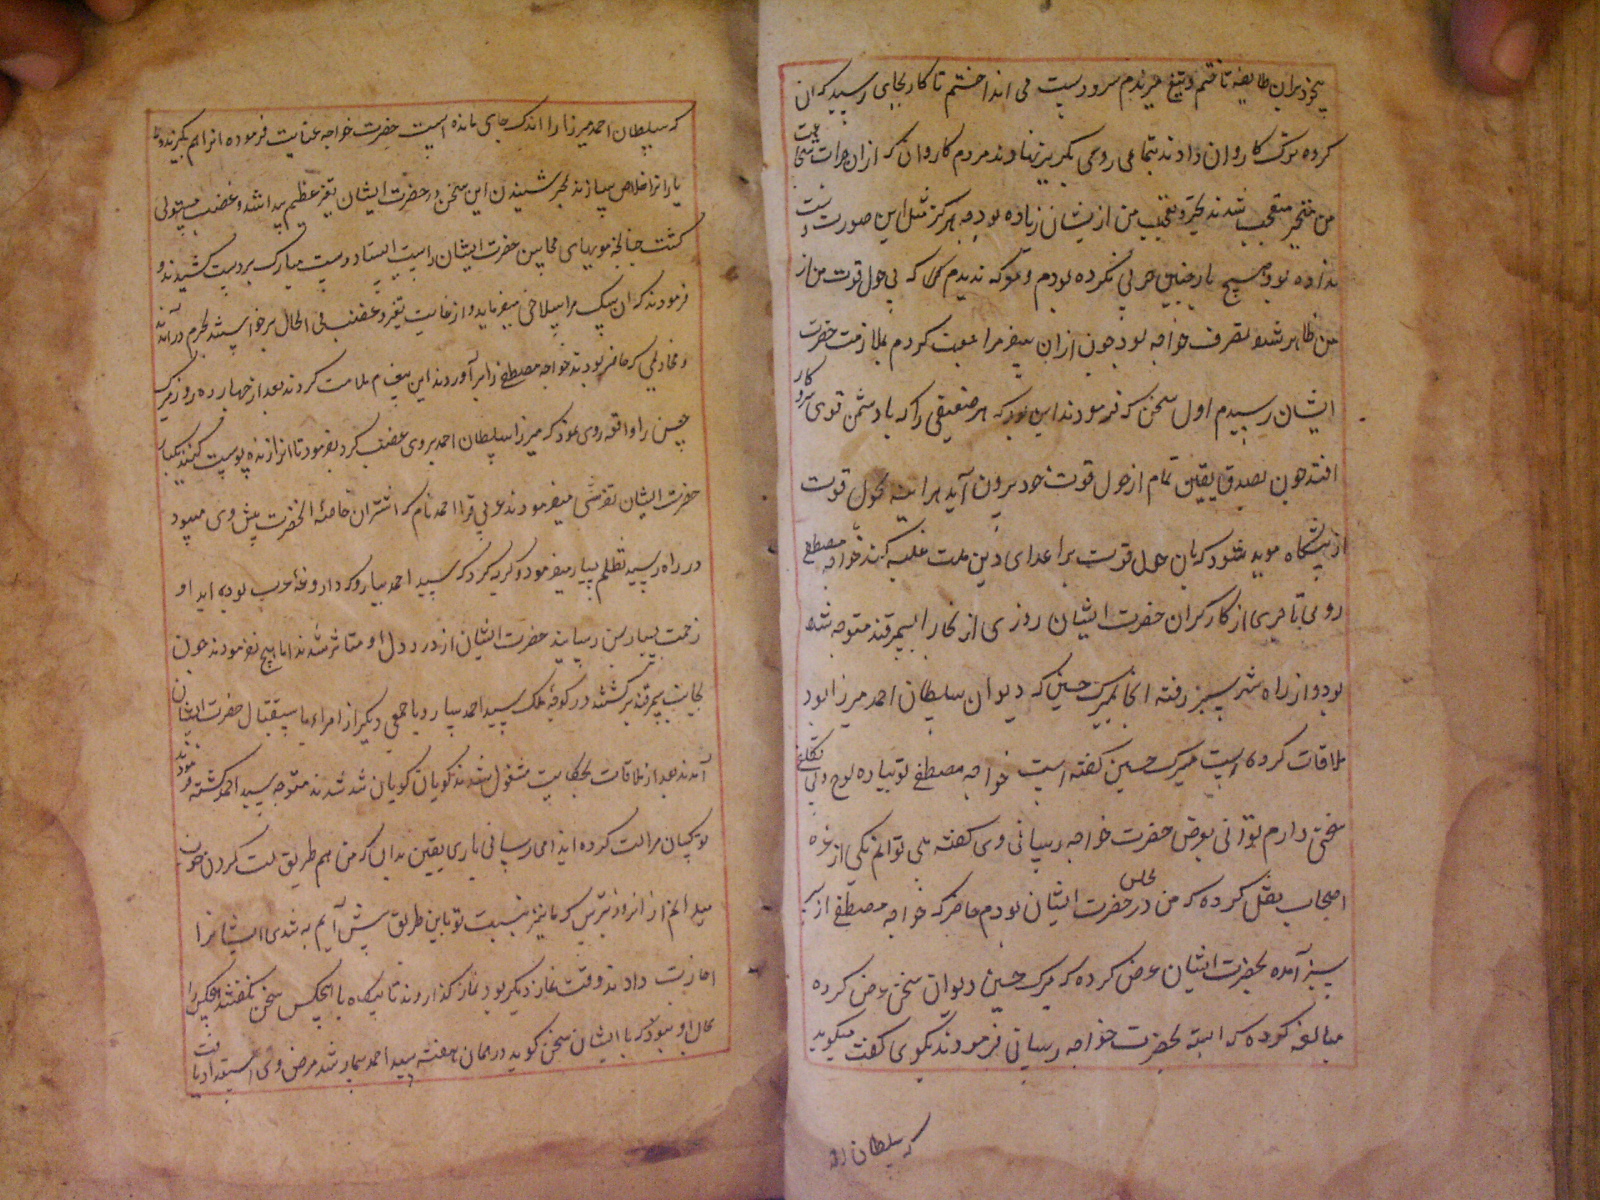 بیخود بر ان طایفه تاختم و تیغ میزدم سر و دست می انداختم تا کار بجای رسید که ان
کرده ترک کاروان دادند بتمامی روی بگریز نهادند مردم کاروان که از ان جرات شجاعت
من متحیر متعجب شدند تحیر و تعجب من از یشان زیاده بود چه هرگز مثل این صورت دست
نداده بود هیچ بار چنین حربی نکرده بودم و معرکه ندیدم که بی حول قوت من از
من ظاهر شد تصرف خواجه بود چون از ان سفر مراجعت کردم بملازمت حضرت
ایشان رسیدم اول سخن که فرمودند این بود که هر ضعیفی را که با دشمن قوی سر و کار
افتد چون بصدق یقین تمام از حول قوت خود بیرون آید هراینه بحول قوت
از پیشگاه موید شود که بان حول قوت بر اعدای دین ملت غلبه کند خواجه مصطفی
رومی تاجری از کارکران حضرت ایشان روزی از بخارا بسمرقند متوجه شده
بود و از راه شهر سبز رفته انجا میرک حسین که دیوان سلطان احمد میرزا بود
ملاقات کرده است میرک حسین گفته است خواجه مصطفی تو پیاده لوح و بی تکلفی
سخنی دارم توانی بعرض حضرت خواجه رسانی وی گفته بلی توانم یکی از عزه
اصحاب نقل کرده که من در مجلس حضرت ایشان بودم حاضر که خواجه مصطفی از شهر
سبز آمده بحضرت ایشان عرض کرده که میرک حسین دیوان سخن عرض کرده
مبالغه نموده که البته بحضرت خواجه رسانی فرمودند بگوی گفت میگوید
که سلطان احمد
که سلطان احمد میرزا را اندک جای مانده است حضرت خواجه عنایت فرموده انرا هم بگیرند و ما
یا را انرا خلاص سازند بمجرد شنیدن این سخن در حضرت ایشان تغیر عظیم پیدا شد و غضب مستولی
گشت چنانچه مویهای محاسن حضرت ایشان راست ایستاد و دست مبارک بر دست کشیدند و
فرمودند که ان سگ مرا سلاخی میفرماید و از غایت تغیر و غضب فی الحال برخواستند بحرم درآمدند
و مخادیمی که حاضر بودند خواجه مصطفی را برآوردند این پیغام ملامت کردند بعد از چهارده روز میرک
حسین را واقعه روی نمود که میرزا سلطان احمد بروی غضب کرد بفرمود تا انرا زنده پوست کنند یکبار
حضرت ایشان تفرشی میفرمودند عربی قرا احمد نام که اشتران خاصه الحضرت پیش وی میبود
در راه رسید تظلم بسیار میفرمود و گریه کرد که سید احمد سارو که داروغه عرب بوده اید او
زحمت بسیار بمن رسانید حضرت ایشان از درد دل او متاثر شدند اما هیچ نفرمودند چون
بجانب سمرقند برگشتند در کوفه ملک سید احمد سارو با جمعی دیگر از امراء باستقبال حضرت ایشان
آمدند بعد از ملاقات بحکایت مشغول شدند گویان گویان شد شدند متوجه سید احمد گشته فرمودند
تو کسان مرا لت کرده ایذا می رسانی باری یقین بدان که من هم طریق لت کردن خوب
میدانم از انروز بترس که ما نیز نسبت تو باین طریق پیش آیم بعد ایشانرا
اجازت دادند وقت نماز دیگر بود نماز گذاردند تا بیگاه با هیچکس سخن نگفتند هیچکس را
مجال او نبود که با ایشان سخن گوید در همان هفته سید احمد بیمار شد مرض وی اشتداد یافت